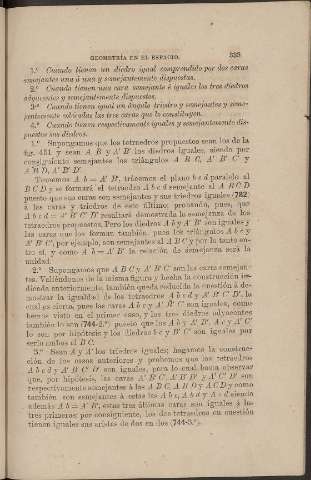 GEOMETRÍA EN EL ESPACIO. 533
1.º Cuando tienen un diedro igual comprendido por dos caras
semejantes una á una y semejantemente dispuestas.
2.º Cuando tienen una cara semejante é iguales los tres diedros
adyacentes y semejantemente dispuestos.
3.º Cuando tienen igual un ángulo triedro y semejantes y seme-
jantemente colocadas las tres caras que lo constituyen.
4.º Cuando tienen respectivamente iguales y semejantemente dis-
puestos sus diedros.
1.º Supongamos que los tetraedros propuestos sean los de la
fig. 451 y sean A B y A' B' los diedros iguales, siendo por
consiguiente semejantes los triángulos A B C, A' B' C' y
A B D, A' B' D'.
Tomemos A b = A' B', tracemos el plano b c d paralelo al
B C D y se formará el tetraedro A b c d semejante al A B C D
puesto que sus caras son semejantes y sus triedros iguales (782)
á las caras y triedros de este último; probando, pues, que
A b c d = A' B' C' D' resultará demostrada la semejanza de los
tetraedros propuestos. Pero los diedros A b y A' B' son iguales y
las caras que los forman también, pues los triángulos A b c y
A' B' C', por ejemplo, son semejantes al A B C y por lo tanto en-
tre sí, y como A b = A' B' la relación de semejanza será la
unidad.
2.º Supongamos que A B C y A' B' C' son las caras semejan-
tes. Valiéndonos de la misma figura y hecha la construcción in-
dicada anteriormente, también queda reducida la cuestión á de-
mostrar la igualdad de los tetraedros A b c d y A' B' C' D', la
cual es cierta, pues las caras A b c y A' B' C' son iguales, como
hemos visto en el primer caso, y los tres diedros adyacentes
también lo son (744-2.º) puesto que los A b y A' B', A c y A' C'
lo son por hipótesis y los diedros b c y B' C' son iguales por
serlo ambos al B C.
3.º Sean A y A' los triedros iguales; hagamos la construc-
ción de los casos anteriores y probemos que los tetraedros
A b c d y A' B' C' D' son iguales, para lo cual basta observar
que, por hipótesis, las caras A' B' C', A' B' D' y A' C' D' son
respectivamente semejantes á las A B C, A B D y A C D y como
también son semejantes á estas las A b c, A b d y A c d siendo
además A b = A' B', estas tres últimas caras son iguales á las
tres primeras; por consiguiente, los dos tetraedros en cuestión
tienen iguales sus aristas de dos en dos (744-3.º).